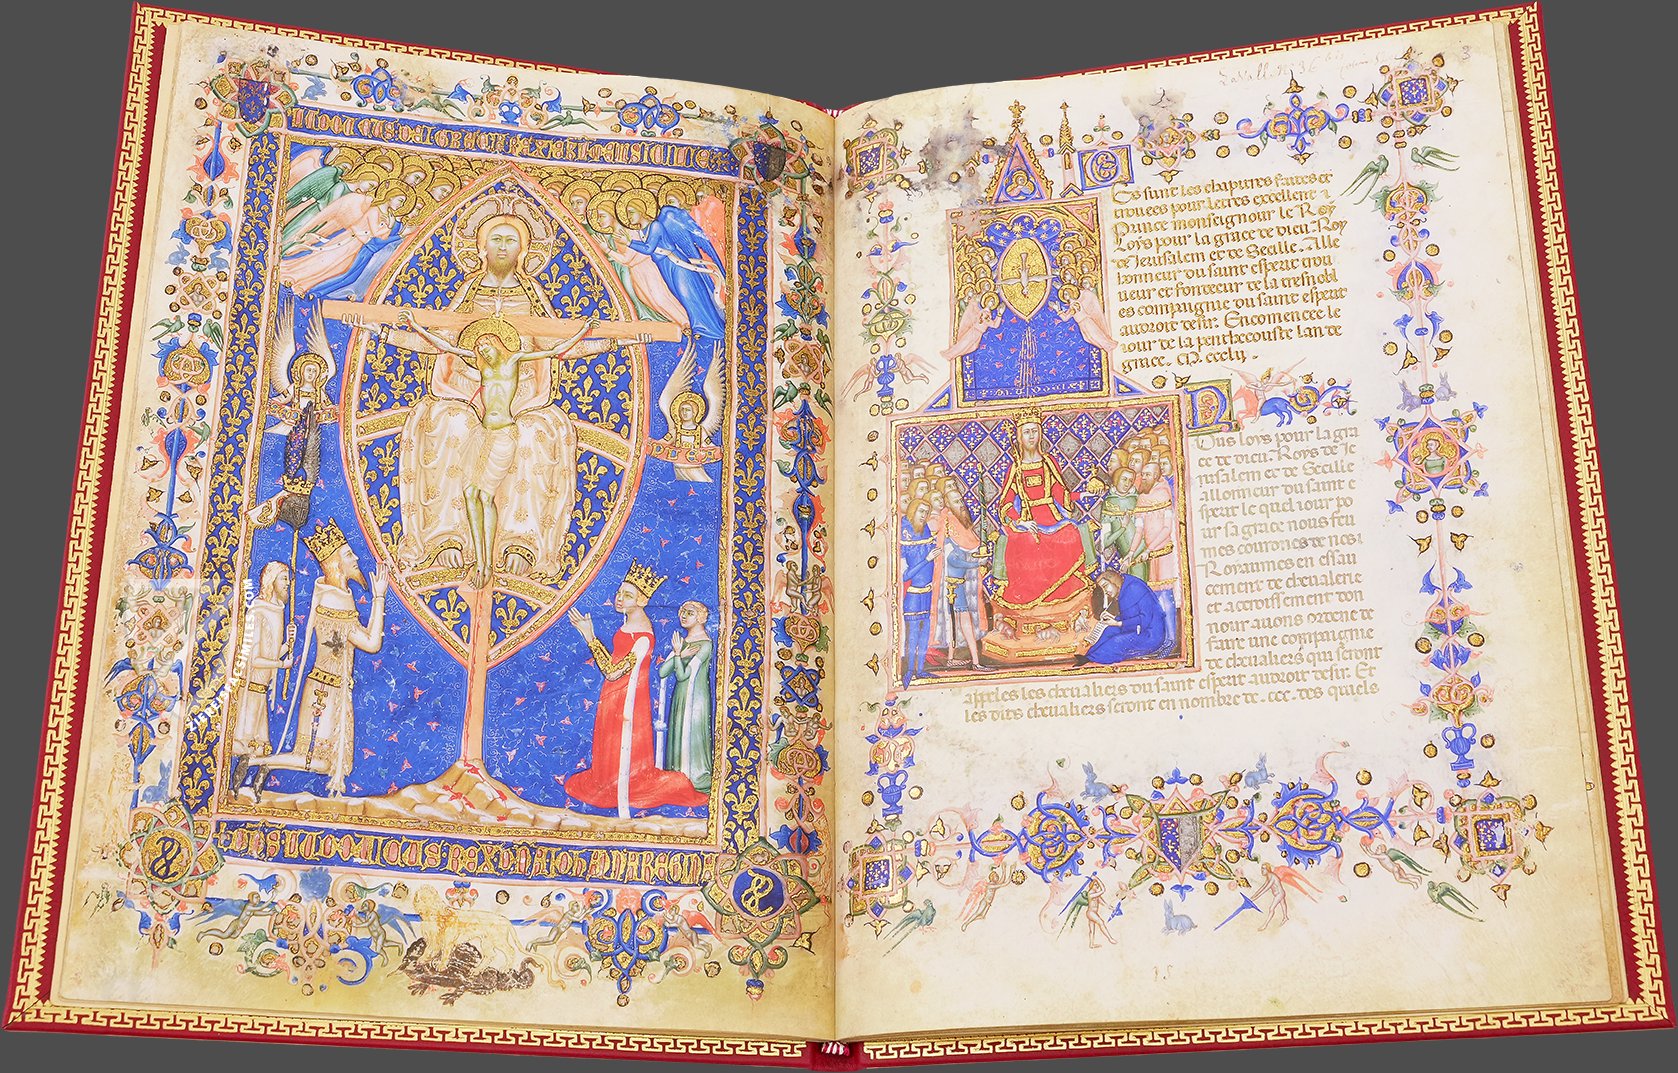 LUDOVICUS DEI GRACIA REX JERUSALEM ET SICILIE
LUDOVICUS REX D̄NA IOHANNA REGINA
3
Es sunt les chapitres faites et
trouees pour letres excellent &
Prince monseignour le Roy
Loys pour la grace de dieu Roy
de Jerusalem et de Secille. Alle
lonneur du saint esperit trou
ueur et fondeeur de la tresnobl
es compaignie du saint esperit
audroit desir. Encomencee le
iour de la penthecouste lan de
grace. M. ccclij.
Ous loys pour la gra
ce de dieu. Roys de Je
rusalem et de Secille
allonneur du saint e
sperit le quel iour po
ur sa grace nous feu
mes courones de nos
Roraumes en essau
cement de cheualerie
et accroissement don
nour auons ordene de
faire une compaignie
de cheualiers qui seront
appeles les cheualiers du saint esperit audroit desir. Et
les dits cheualiers seront en nombre de .ccc. des quiels